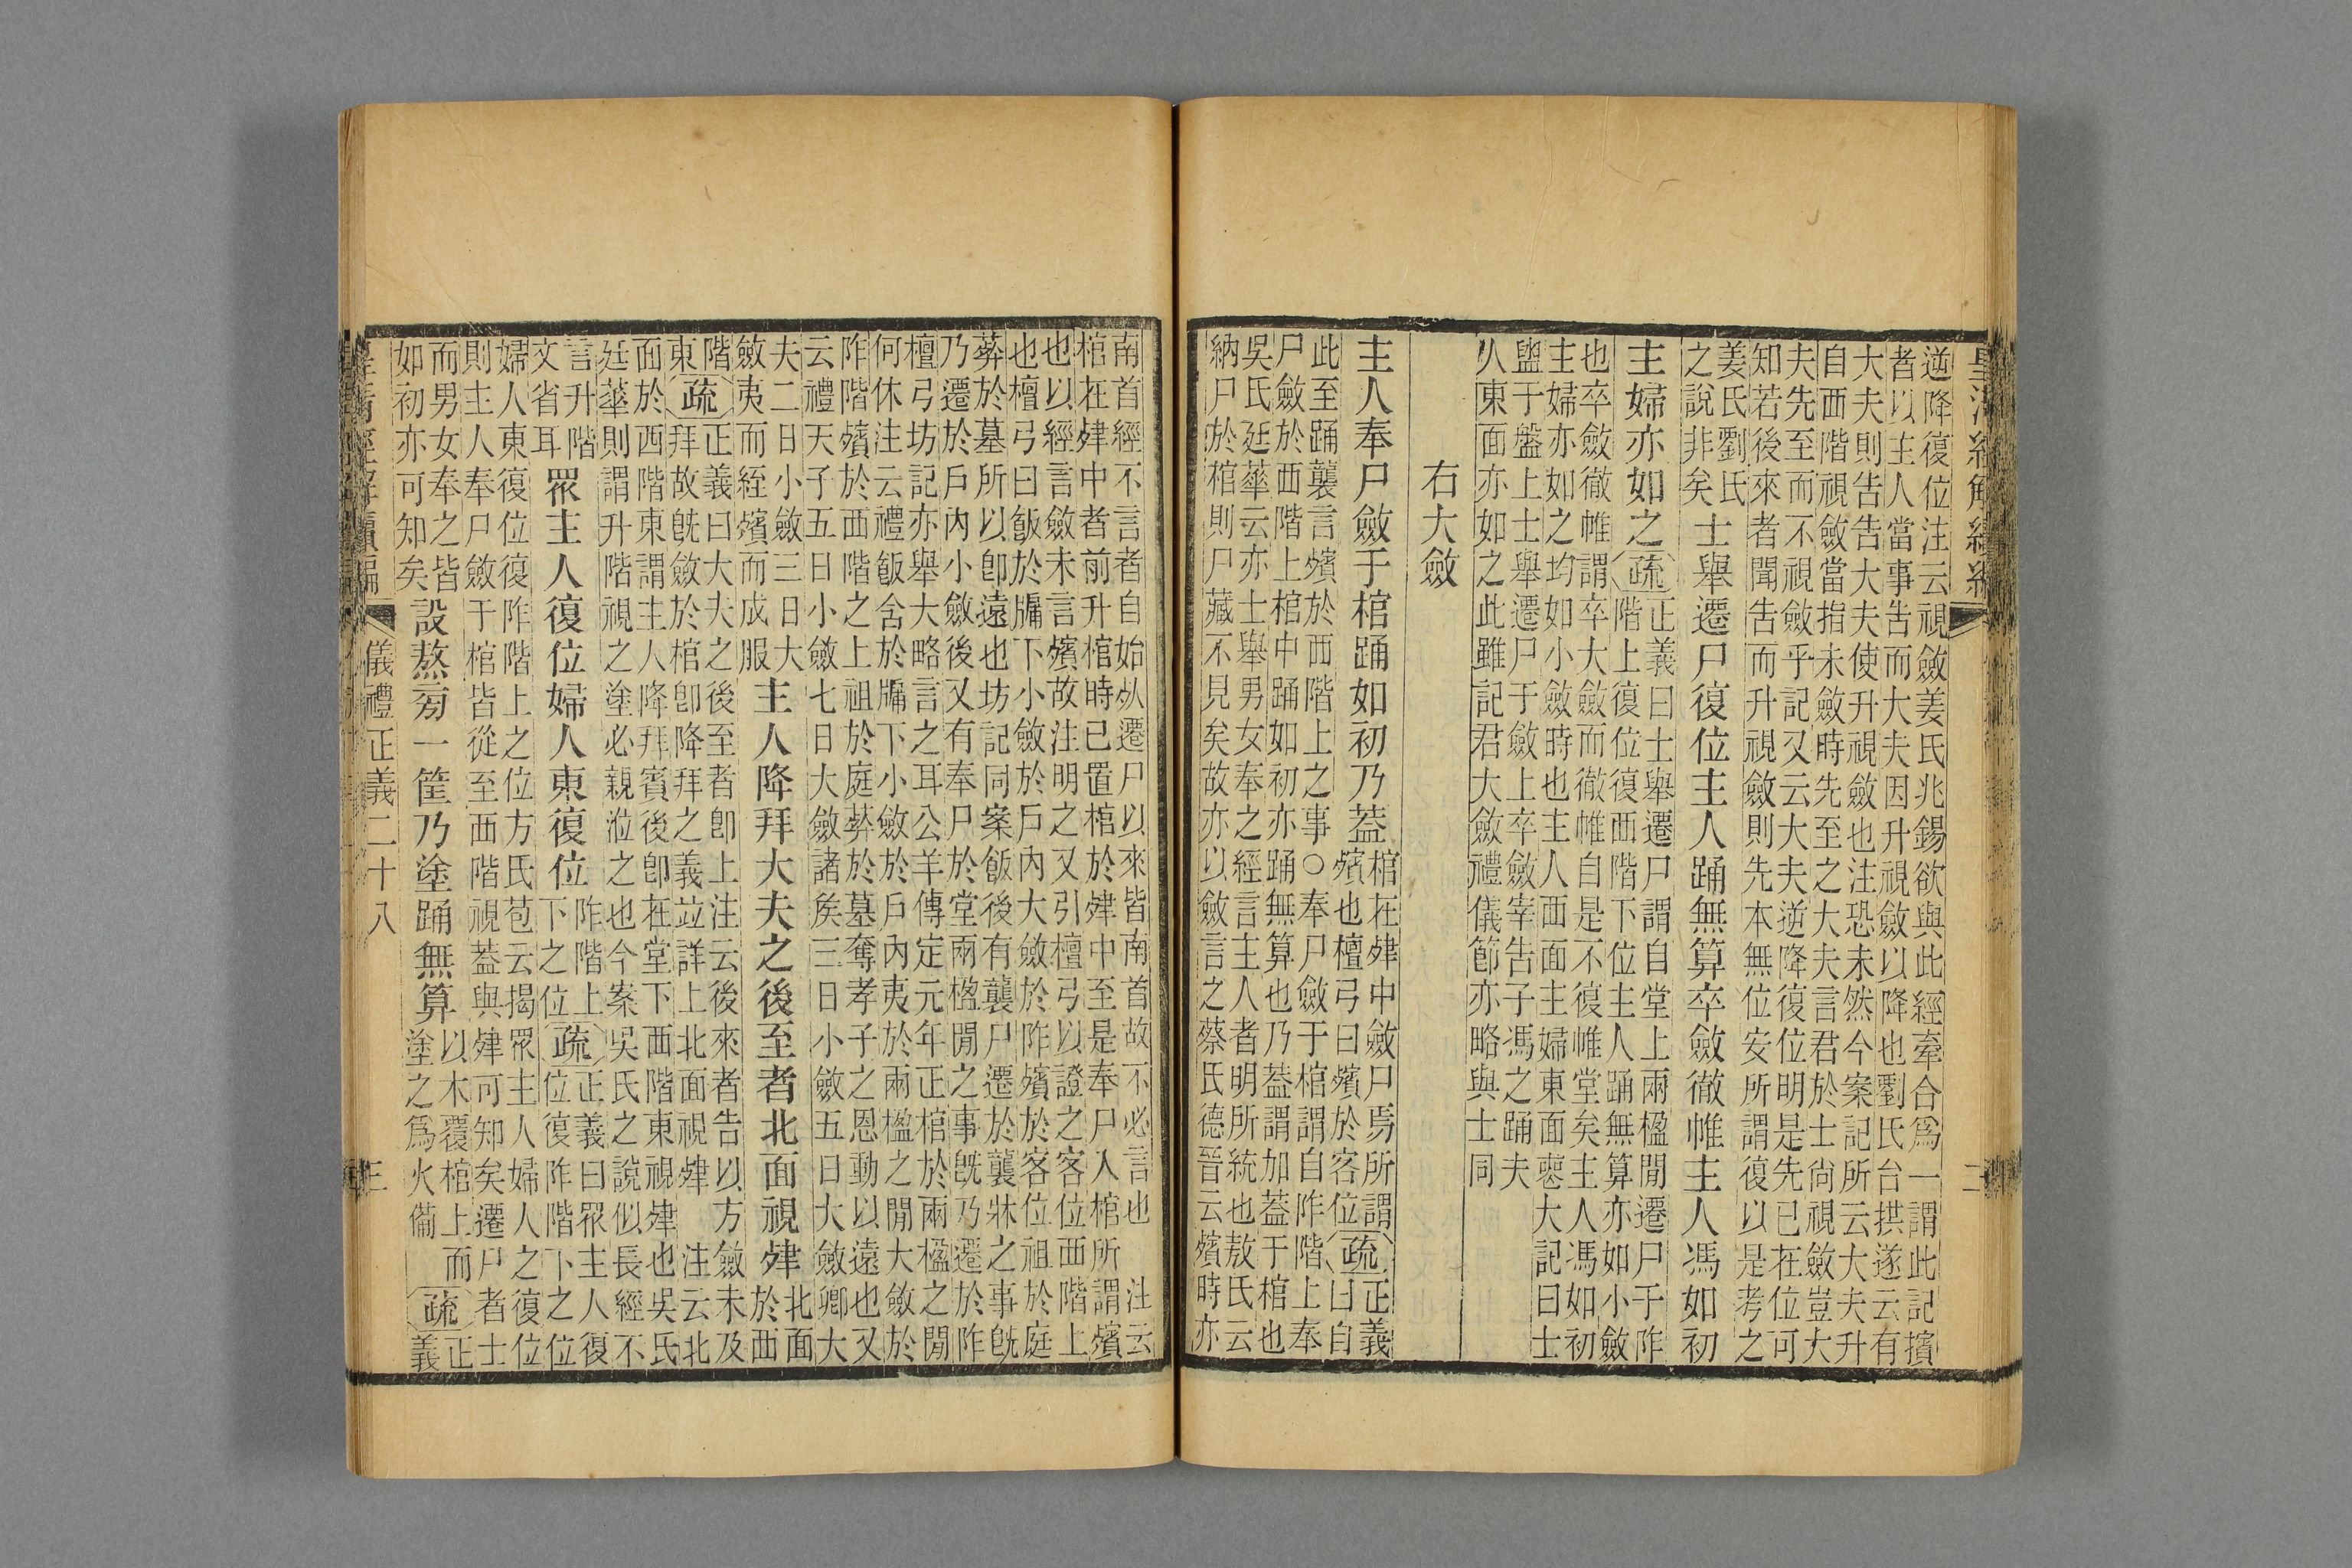 皇清經解續編 二
逆降復位注云視斂姜氏兆錫欲與此經牽合爲一謂此記擯
者以主人當事告而大夫因升視斂以降也劉氏台拱遂云有
大夫則告告大夫使升視斂也注恐未然今案記所云大夫升
自西階視斂當指未斂時先至之大夫言君於士尚視斂豈大
夫先至而不視斂乎記又云大夫逆降復位明是先已在位可
知若後來者聞告而升視斂則先本無位安所謂復以是考之
姜氏劉氏
之說非矣
士舉遷尸復位主人踊無算卒斂徹帷主人馮如初
主婦亦如之
疏
正義曰士舉遷尸謂自堂上兩楹閒遷尸于阼
階上復位復西階下位主人踊無算亦如小斂
也卒斂徹帷謂卒大斂而徹帷自是不復帷堂矣主人馮如初
主婦亦如之均如小斂時也主人西面主婦東面喪大記曰士
盥于盤上士舉遷尸于斂上卒斂宰告子馮之踊夫
人東面亦如之此雖記君大斂禮儀節亦略與士同
右大斂
主人奉尸斂于棺踊如初乃葢
棺在肂中斂尸焉所謂
殯也檀弓曰殯於客位
疏
正義
曰自
此至踊襲言殯於西階上之事○奉尸斂于棺謂自阼階上奉
尸斂於西階上棺中踊如初亦踊無算也乃葢謂加葢于棺也
吳氏廷華云亦士舉男女奉之經言主人者明所統也敖氏云
納尸於棺則尸藏不見矣故亦以斂言之蔡氏德晉云殯時亦
南首經不言者自始𣦸遷尸以來皆南首故不必言也 注云
棺在肂中者前升棺時已置棺於肂中至是奉尸入棺所謂殯
也以經言斂未言殯故注明之又引檀弓以證之客位西階上
也檀弓曰飯於牖下小斂於戶內大斂於阼殯於客位祖於庭
葬於墓所以卽遠也坊記同案飯後有襲尸遷於襲牀之事旣
乃遷於戶內小斂後又有奉尸於堂兩楹閒之事旣乃遷於阼
檀弓坊記亦舉大略言之耳公羊傳定元年正棺於兩楹之閒
何休注云禮飯含於牖下小斂於戶內夷於兩楹之閒大斂於
阼階殯於西階之上祖於庭葬於墓奪孝子之恩動以遠也又
云禮天子五日小斂七日大斂諸矦三日小斂五日大斂卿大
夫二日小斂三日大
斂夷而絰殯而成服
主人降拜大夫之後至者北面視肂
北面
於西
階東
疏
正義曰大夫之後至者卽上注云後來者告以方斂未及
拜故旣斂於棺卽降拜之義竝詳上北面視肂 注云北
面於西階東謂主人降拜賓後卽在堂下西階東視肂也吳氏
廷華則謂升階視之塗必親涖之也今案吳氏之說似長經不
言升階
文省耳
眾主人復位婦人東復位
阼階上
下之位
疏
正義曰眾主人復
位復阼階下之位
婦人東復位復阼階上之位方氏苞云揭眾主人婦人之復位
則主人奉尸斂于棺皆從至西階視葢與肂可知矣遷尸者士
而男女奉之皆
如初亦可知矣
設熬旁一筐乃塗踊無算
以木覆棺上而
塗之爲火備
疏
正
義
皇清經解續編 儀禮正義二十八 三